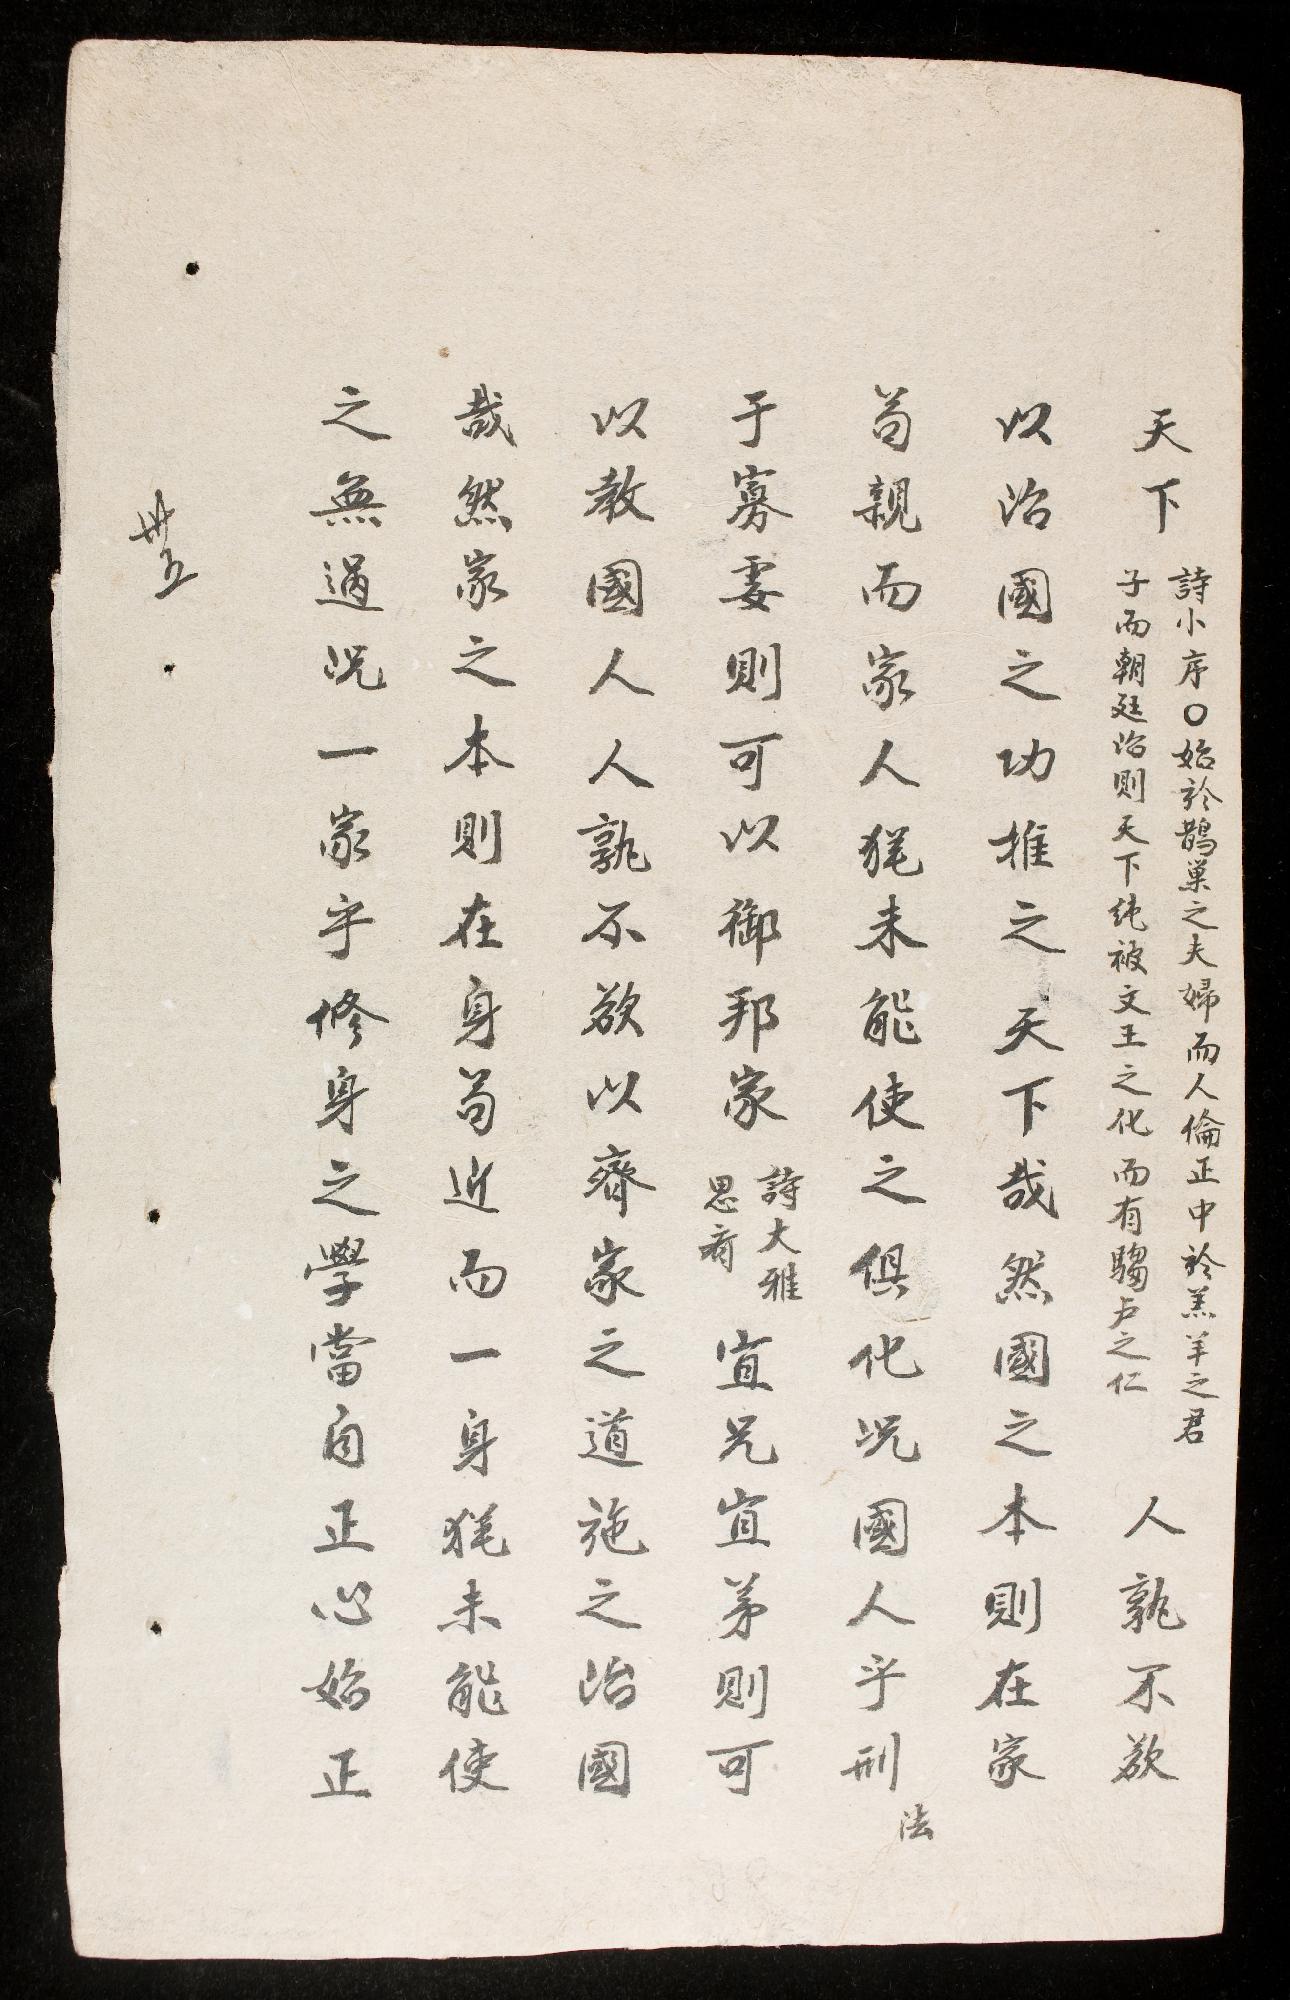 天下
詩小序〇始於鵲巢之夫婦而人倫正中於羔羊之君
子而朝廷治則天下純被文王之化而有騶卢之仁
人孰不欲
以治國之功推之天下哉然國之本則在家
苟親而家人犹未能使之俱化况國人乎刑
法
于寡妻則可以御邦家
詩大雅
思齊
宜兄宜弟則可
以教國人人孰不欲以齊家之道施之治國
哉然家之本則在身苟近而一身犹未能使
之無過况一家乎修身之學當自正心始正
卅五